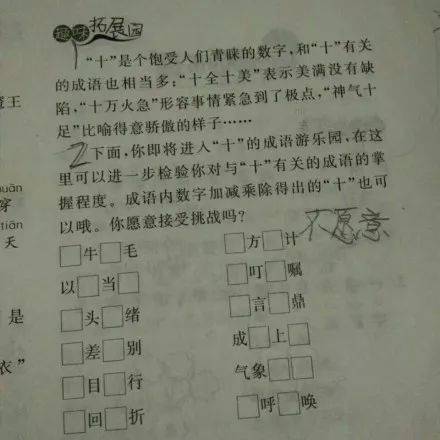 趣味拓展园
“十”是个饱受人们青睐的数字，和“十”有关
的成语也相当多：“十全十美”表示美满没有缺
陷，“十万火急”形容事情紧急到了极点，“神气十
足”比喻得意骄傲的样子……
下面，你即将进人“十”的成语游乐园，在这
里可以进一步检验你对与“十”有关的成语的掌
握程度。成语内数字加减乘除得出的“十”也可
以哦。你愿意接受挑战吗？ 不愿意
□牛□毛 □方□计
以□当□ □叮□嘱
□头□绪 □言□鼎
□差□别 成□上□
□目□行 气象□□
□回□折 □呼□唤
王
uān
穿
tiān
天
是
衣”